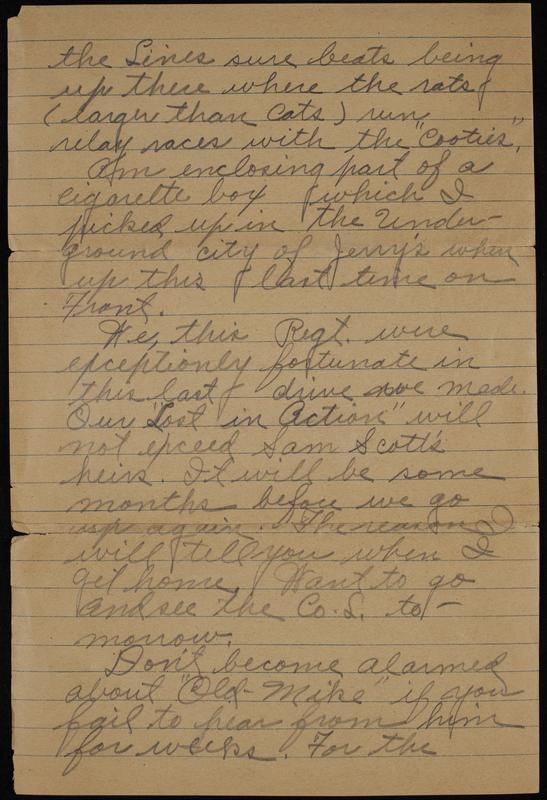 the Lines sure beats being
up there where the rats
(larger than Cats) run
relay races with the "Cooties",
Am enclosing part of a
cigarette box which I
picked up in the Under-
ground city of Jerry's when
up this last time on
Front.
We, this Regt. were
exceptionly fortunate in
this last drive we made.
Our "Lost in Action" will
not exceed Sam Scott's
heirs. It will be some
months before we go
up again. The reason
will tell you when I
get home. Want to go
and see the Co. S. to-
morrow.
Don't become alarmed
about "Old-Mike" if you
fail to hear from him
for weeks. For the